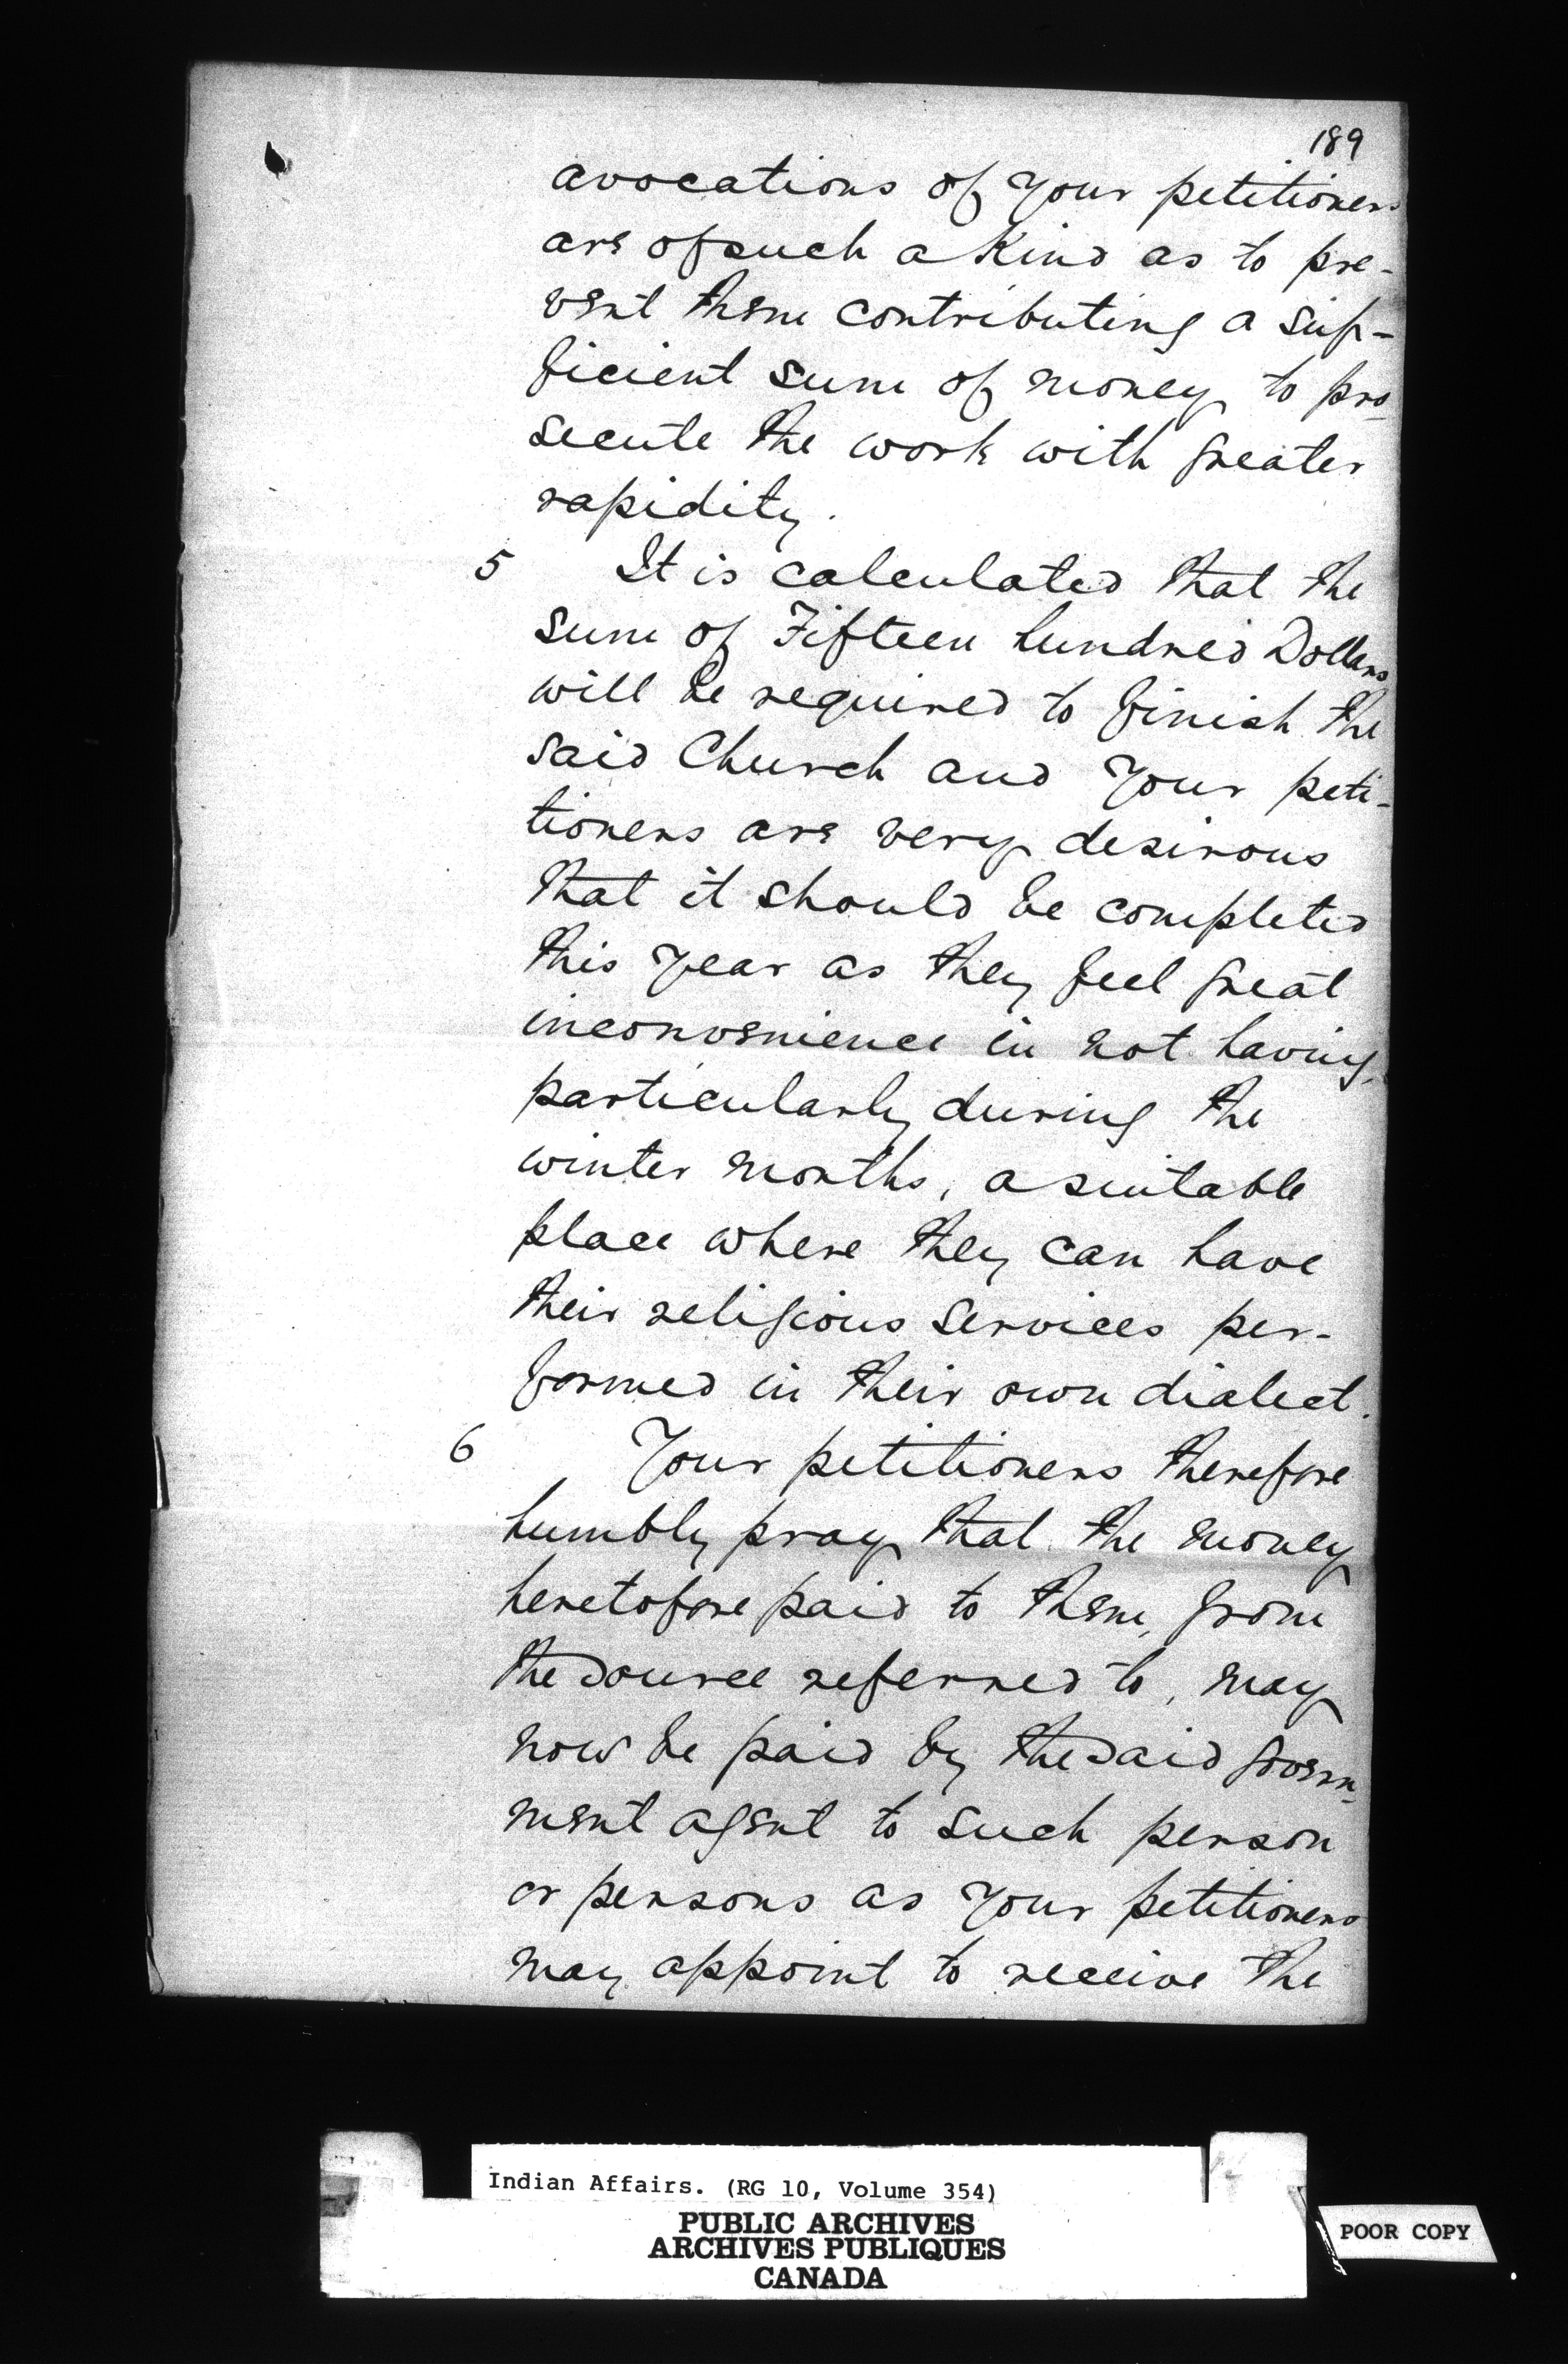 189
avocations of your petitioners
are of such a kind as to pre-
vent them contributing a suf-
ficient sum of money to pro-
secute the work with greater
rapidity.
5 It is calculated that the
sum of Fifteen hundred Dollars
will be required to finish the
said Church and your peti-
tioners are very desirous
that it should be completed
this year as they feel great
inconvenience in not having,
particularly during the
winter months, a suitable
place where they can have
their religious services per-
formed in their own dialect.
6 Your petitioners therefore
humbly pray that the money
heretofore paid to them, from
the source referred to, may
now be paid by the said Govern-
ment agent to such person
or persons as your petitioners
may appoint to receive the
Indian Affairs. (RG 10, Volume 354)
PUBLIC ARCHIVES
ARCHIVES PUBLIQUES
CANADA
POOR COPY